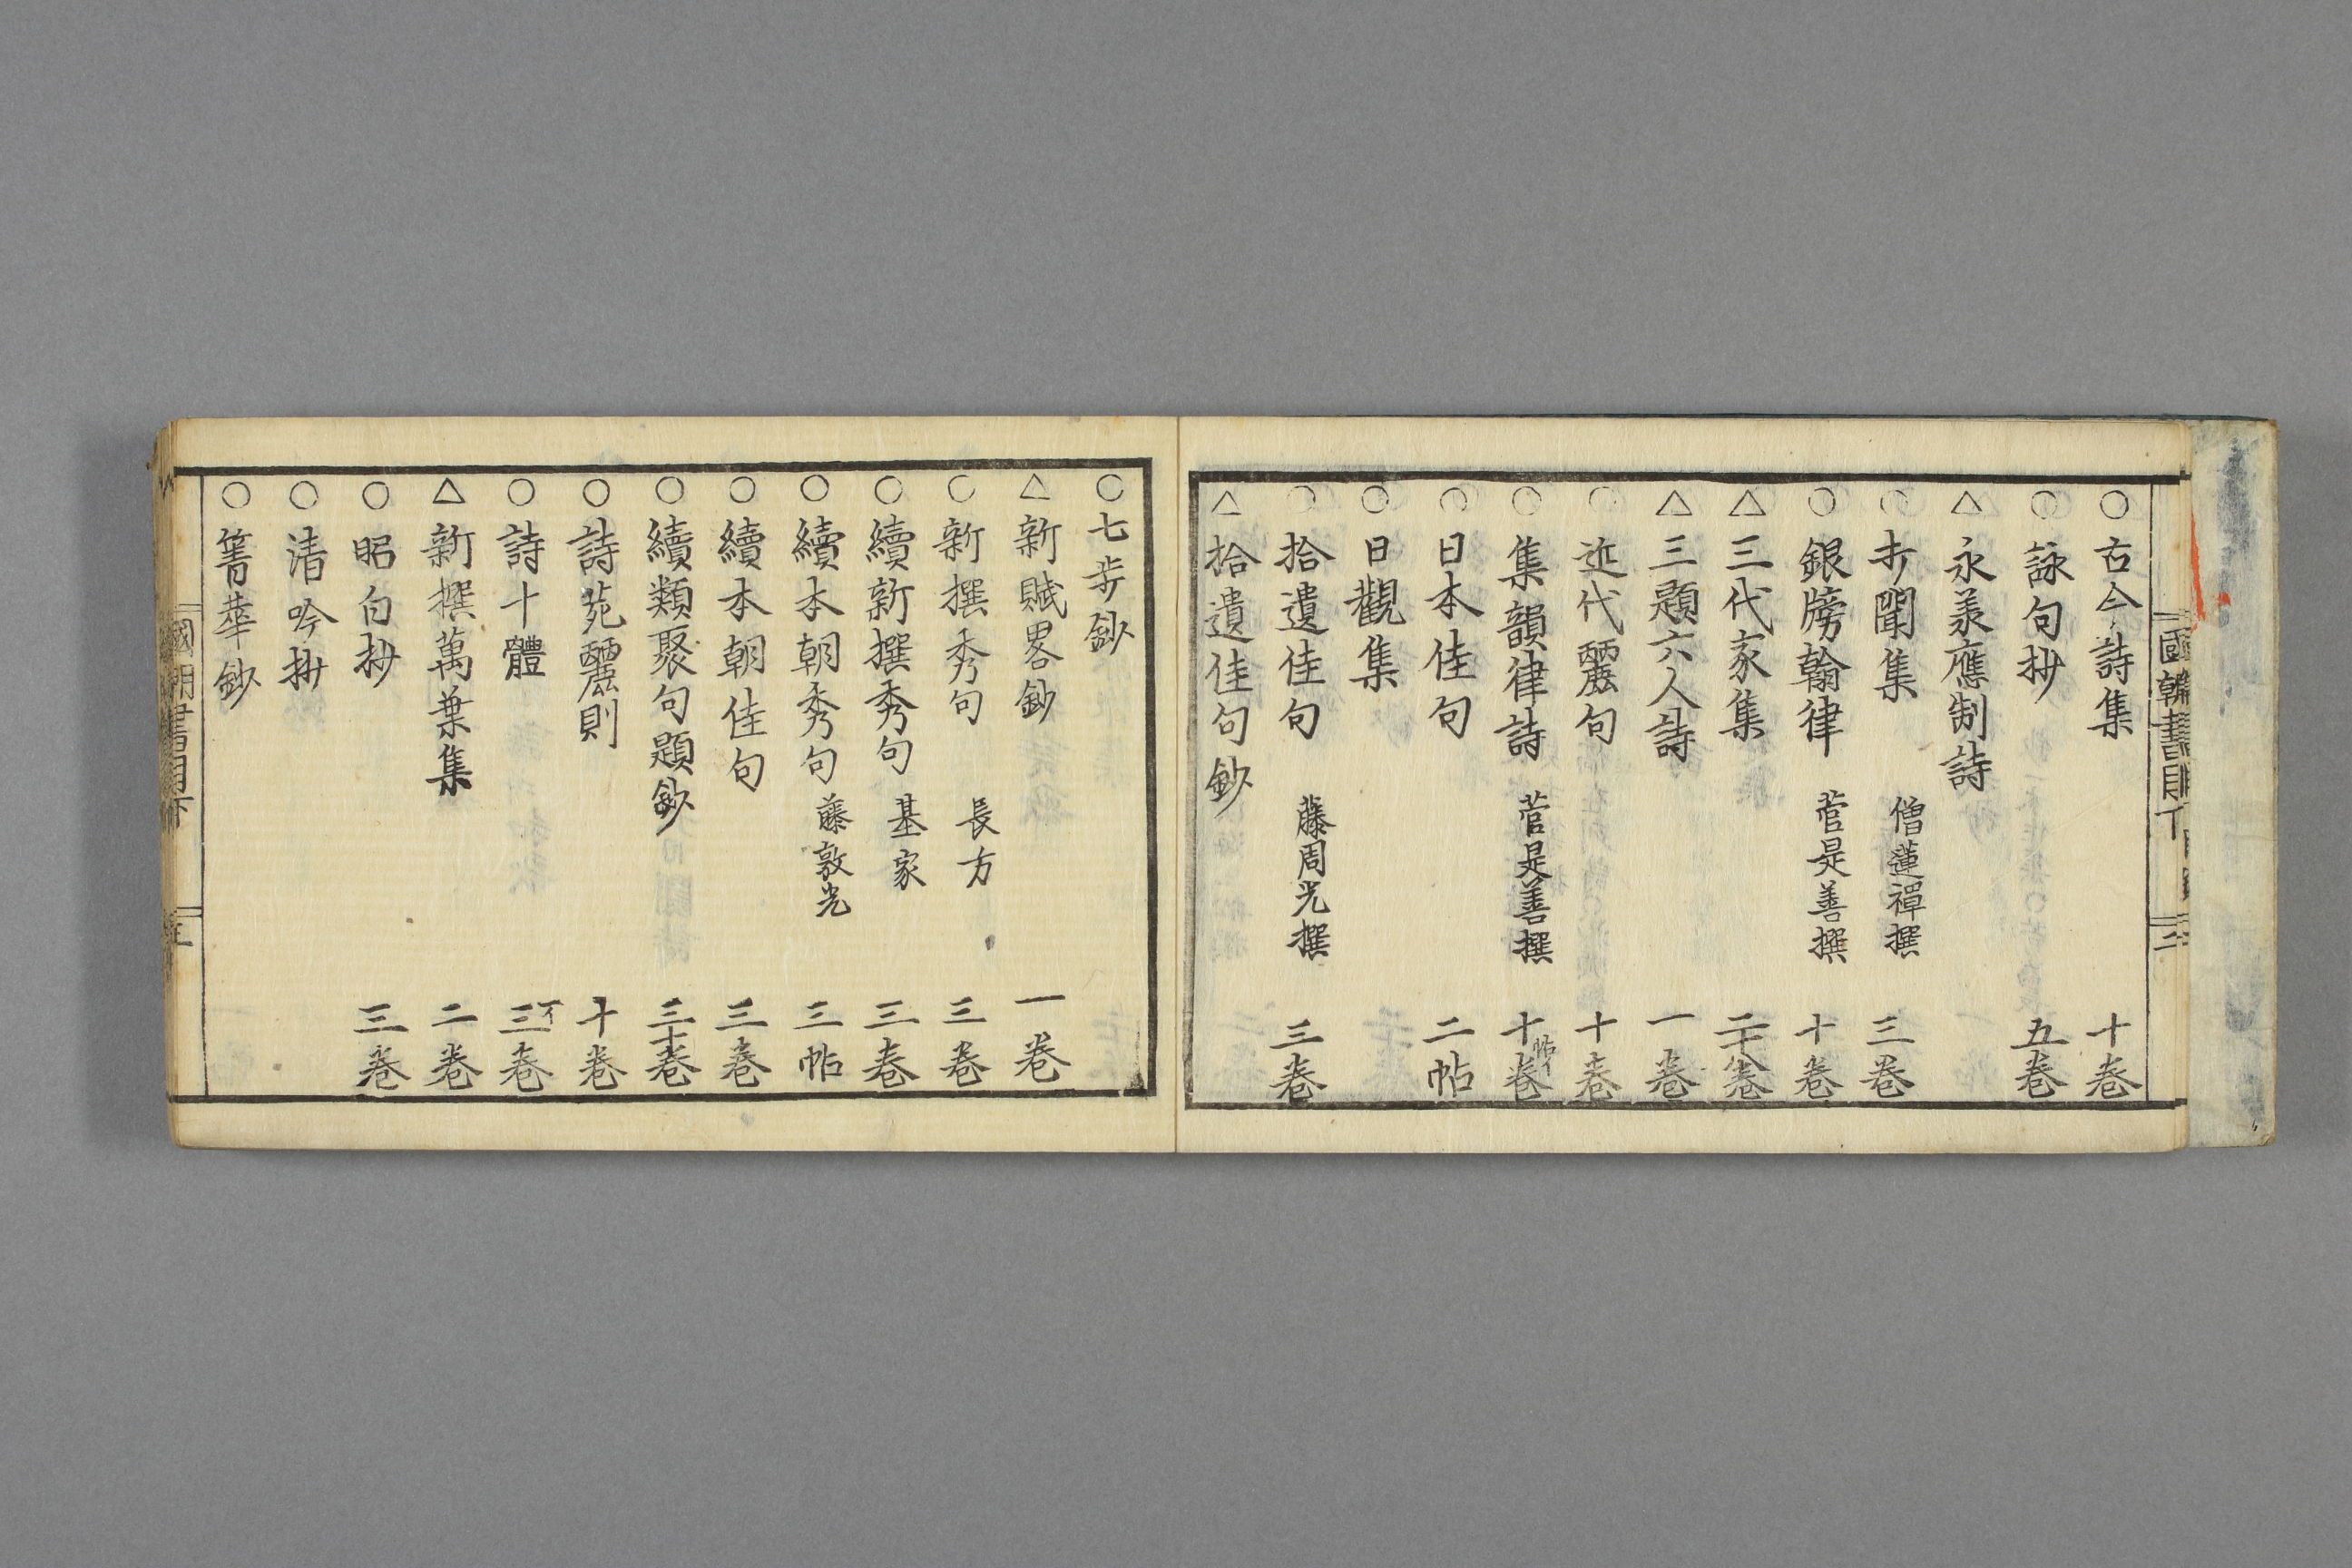 ○古今詩集 十卷
○詠句抄 五卷
△永羕應制詩
○打聞集 僧蓮禪撰 三卷
○銀牓翰律 菅是善撰 十卷
△三代家集 二十八卷
△三題六人詩 一卷
○近代麗句 十卷
○集韻律詩 菅是善撰 十卷 帖イ
○日本佳句 二帖
○日觀集
○拾遺佳句 藤周光撰 三卷
△拾遺佳句鈔
○七步鈔
△新賦畧鈔 一卷
○新撰秀句 長方 三卷
○續新撰秀句 基家 三卷
○續本朝秀句 藤敦光 三帖
○續本朝佳句 三卷
○續類聚句題鈔 三十卷
○詩苑麗則 十卷
○詩十體 三卷
△新撰萬葉集 二卷
○昭句抄 三卷
○清吟抄
○箐華鈔
國朝書目下